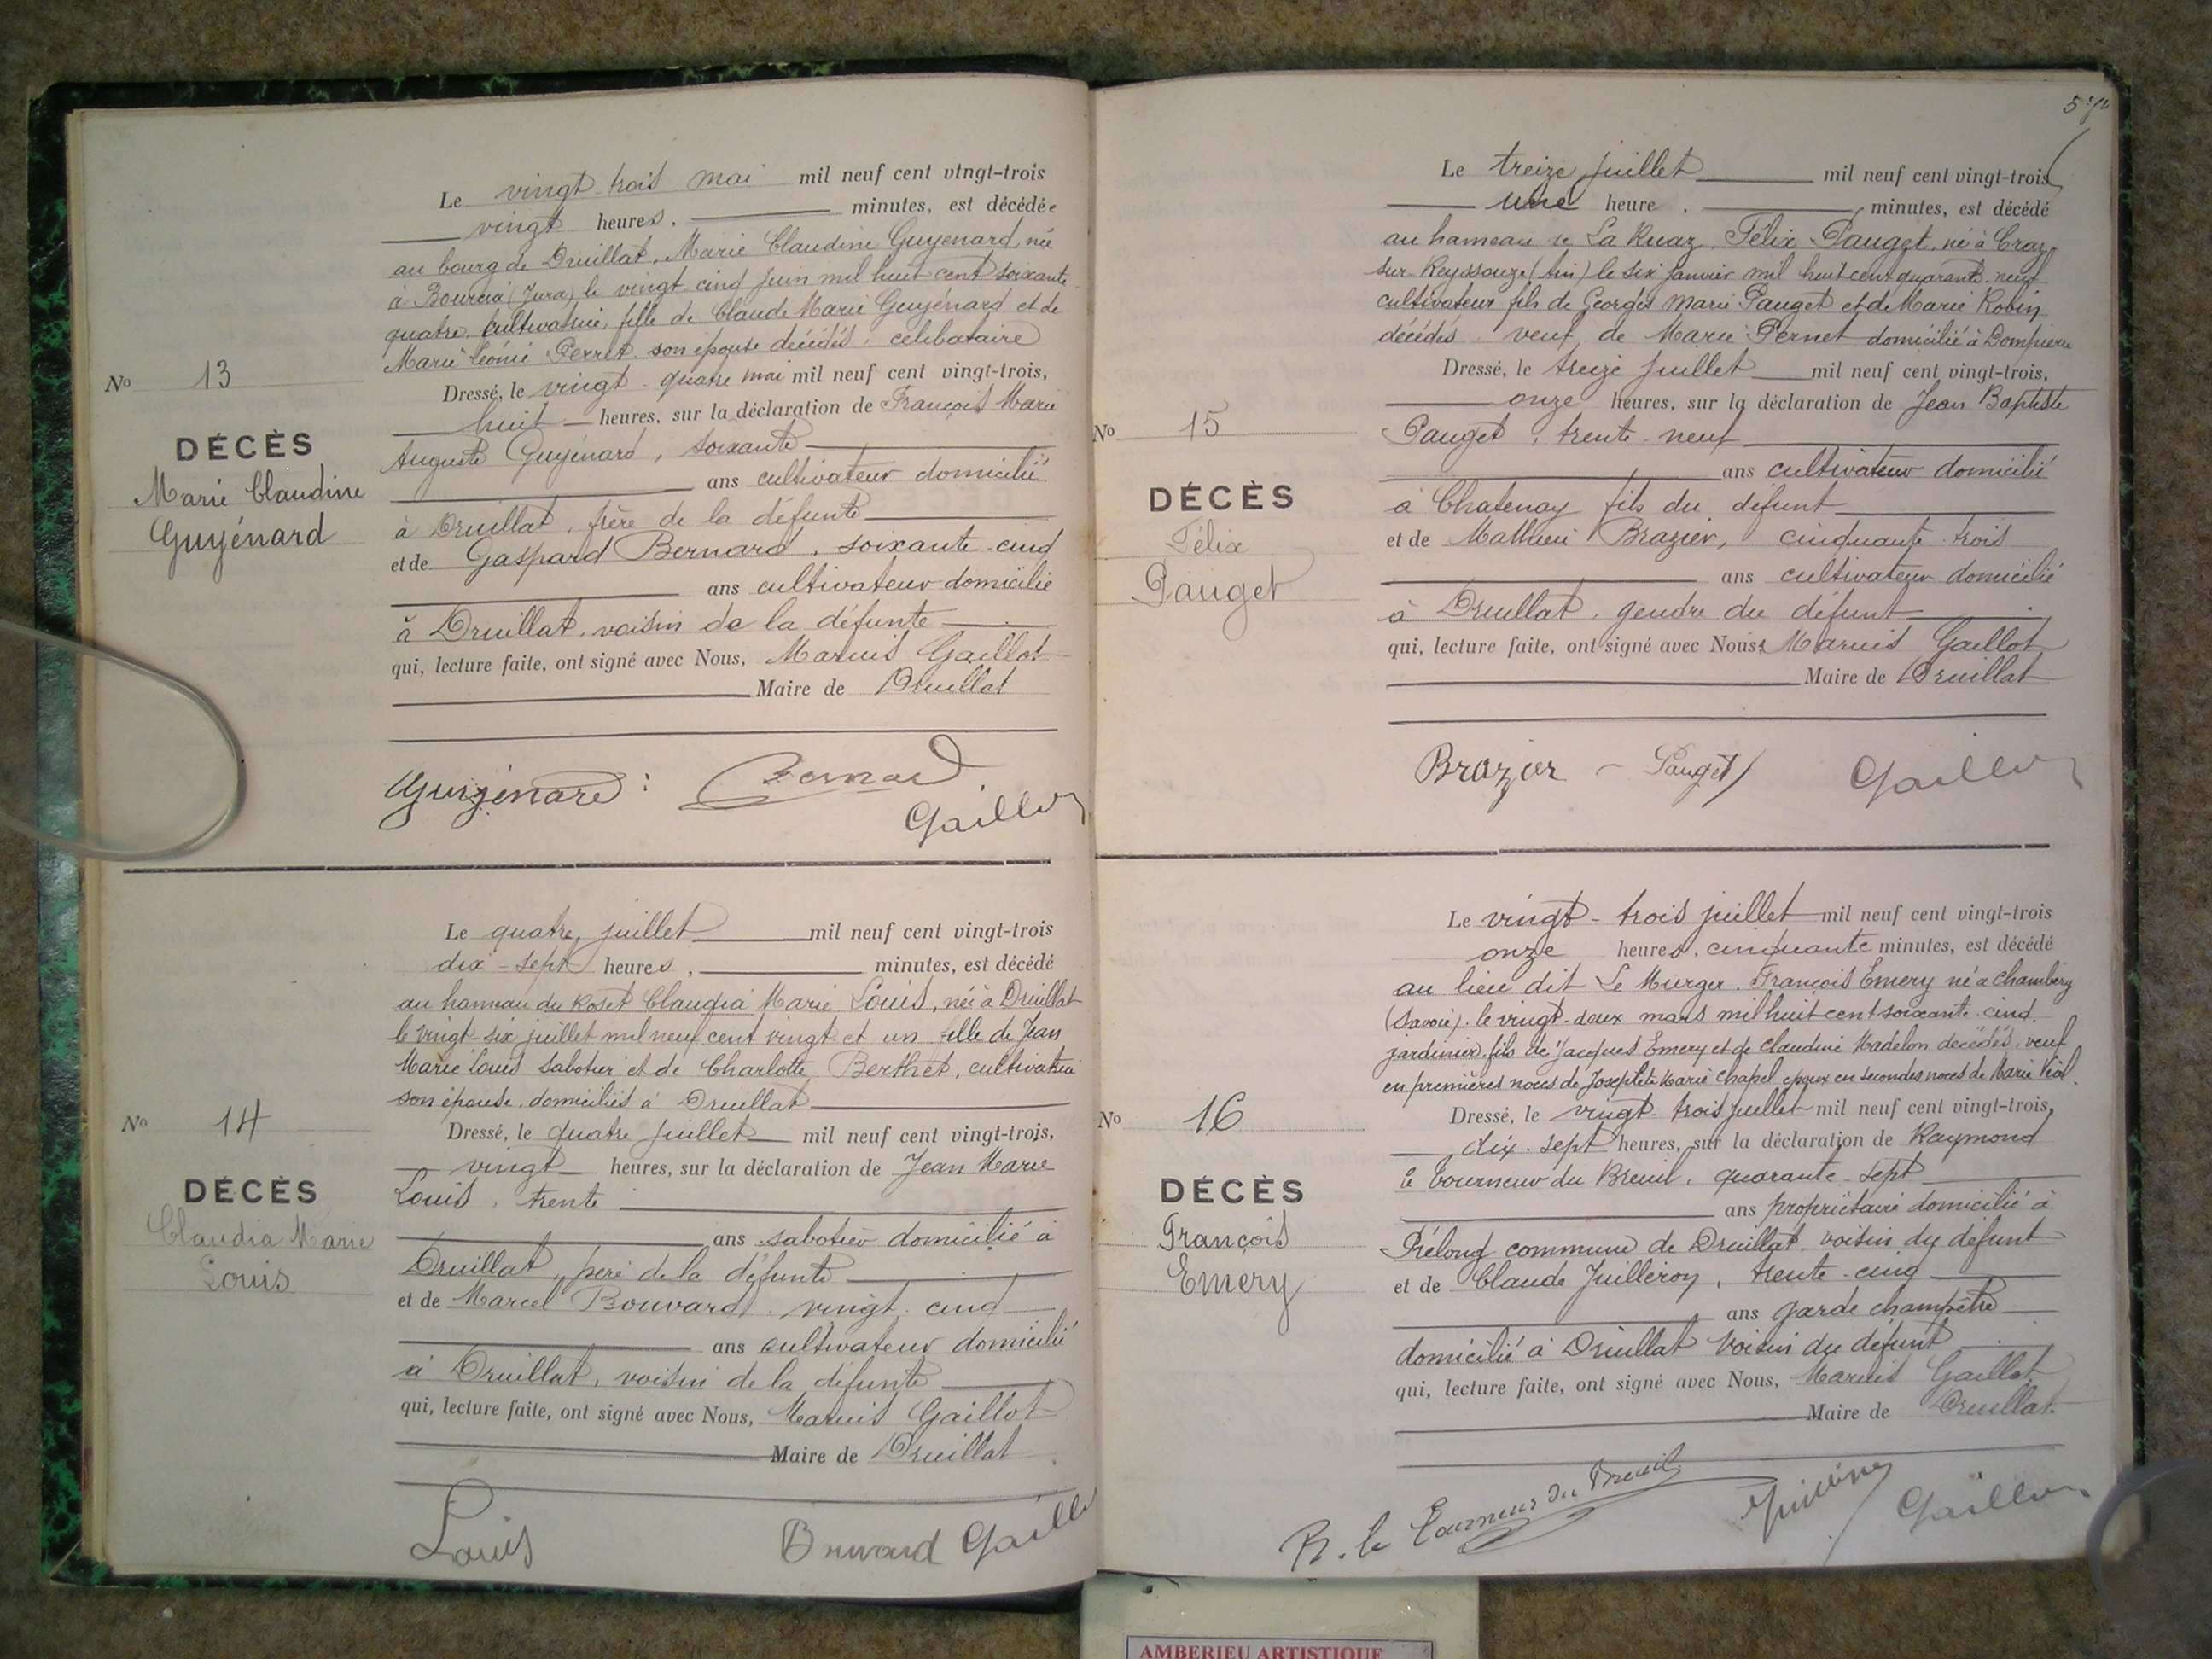 Le vingt trois mai mil neuf cent vtngt-trois
vingt heures, minutes, est décédée
au bourg de Druillat, Marie Claudine Guyénard, née
à Bourcia (Jura) le vingt cinq juin mil huit cent soixante
quatre, cultivatrice, fille de Claude Marie Guyénard et de
Marie Léonie Perret son épouse décédés, célibataire
No 13
Dressé, le vingt quatre mai mil neuf cent vingt-trois,
huit heures, sur la déclaration de François Marie
DÉCÈS
Marie Claudine
Guyénard
Auguste Guyénard, soixante
ans cultivateur domicilié
à Druillat, frère de la défunte
et de Gaspard Bernard, soixante cinq
ans cultivateur domicilié
à Druillat, voisin de la défunte
qui, lecture faite, ont signé avec Nous, Marius Gaillot
Maire de Druillat
Guyénard Bernard
Gaillot
Le quatre juillet mil neuf cent vingt-trois
dix-sept heures, minutes, est décédé
au hameau du Roset Claudia Marie Louis, née à Druillat
le vingt-six juillet mil neuf cent vingt et un fille de Jean
Marie Louis sabotier et de Charlotte Berthet, cultivatrice
son épouse, domiciliés à Druillat
No 14
Dressé, le quatre juillet mil neuf cent vingt-trois,
vingt heures, sur la déclaration de Jean Marie
DÉCÈS
Claudia Marie
Louis
Louis, trente
ans sabotier domicilié à
Druillat, père de la défunte
et de Marcel Bouvard, vingt cinq
ans cultivateur domicilié
à Druillat, voisin de la défunte
qui, lecture faite, ont signé avec Nous, Marius Gaillot
Maire de Druillat
Louis Bouvard Gaillot
Le treize juillet mil neuf cent vingt-trois
une heure, minutes, est décédé
au hameau de La Ruaz, Félix Pauget, né à Cras
sur Reyssouze (Ain) le six janvier mil huit cent quarante neuf
cultivateur fils de Georges Marie Pauget et de Marie Robin
décédés, veuf de Marie Pernet domicilié à Dompierre
Dressé, le treize juillet mil neuf cent vingt-trois,
onze heures, sur la déclaration de Jean Baptiste
No 15
DÉCÈS
Félix
Pauget
Pauget, trente-neuf
ans cultivateur domicilié
à Chatenay fils du défunt
et de Mathieu Brazier, cinquante trois
ans cultivateur domicilié
à Druillat, gendre du défunt
qui, lecture faite, ont signé avec Nous, Marius Gaillot
Maire de Druillat
Brazier - Pauget Gaillot
Le vingt-trois juillet mil neuf cent vingt-trois
onze heures, cinquante minutes, est décédé
au lieu dit Le Murger, François Emery né à Chambéry
(Savoie), le vingt-deux mars mil huit cent soixante cinq
jardinier, fils de Jacques Emery et de Claudine Madelon décédés, veuf
en premières noces de Josephte Marie Chapel, époux en secondes noces de Marie Vial
No 16
Dressé, le vingt-trois juillet mil neuf cent vingt-trois,
dix-sept heures, sur la déclaration de Raymond
DÉCÈS
François
Emery
le Tourneur du Breuil, quarante-sept
ans propriétaire domicilié à
Prélong commune de Druillat, voisin du défunt
et de Claude Juilleroy, trente-cinq
ans garde champêtre
domicilié à Druillat voisin du défunt
qui, lecture faite, ont signé avec Nous, Marius Gaillot
Maire de Druillat
R. le Tourneur du Breuil Gaillot
AMBERIEU ARTISTIQUE